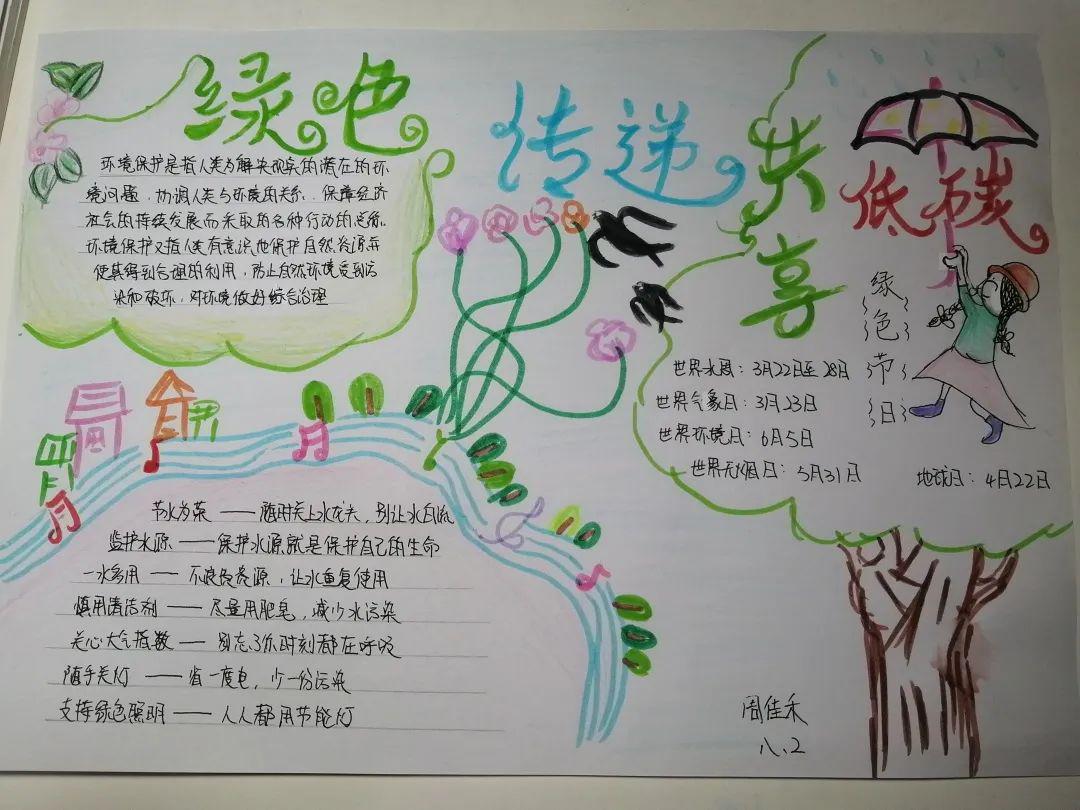 绿色
传递
共享
低碳
环境保护是指人类为解决现实的潜在的环
境问题,协调人类与环境的关系,保障经济
社会的持续发展而采取的各种行动的总称。
环境保护又指人类有意识地保护自然资源并
使其得到合理的利用,防止自然环境受到污
染和破坏,对环境做好综合治理
绿色节日
世界水周:3月22日至28日
世界气象日:3月23日
世界环境日:6月5日
世界无烟日:5月31日
地球日:4月22日
节水为荣——随时关上水龙头,别让水白流
监护水源——保护水源就是保护自己的生命
一水多用——不浪费资源,让水重复使用
慎用清洁剂——尽量用肥皂,减少水污染
关心大气指数——别忘了你时刻都在呼吸
随手关灯——省一度电,少一份污染
支持绿色照明——人人都用节能灯
周佳禾
八.2